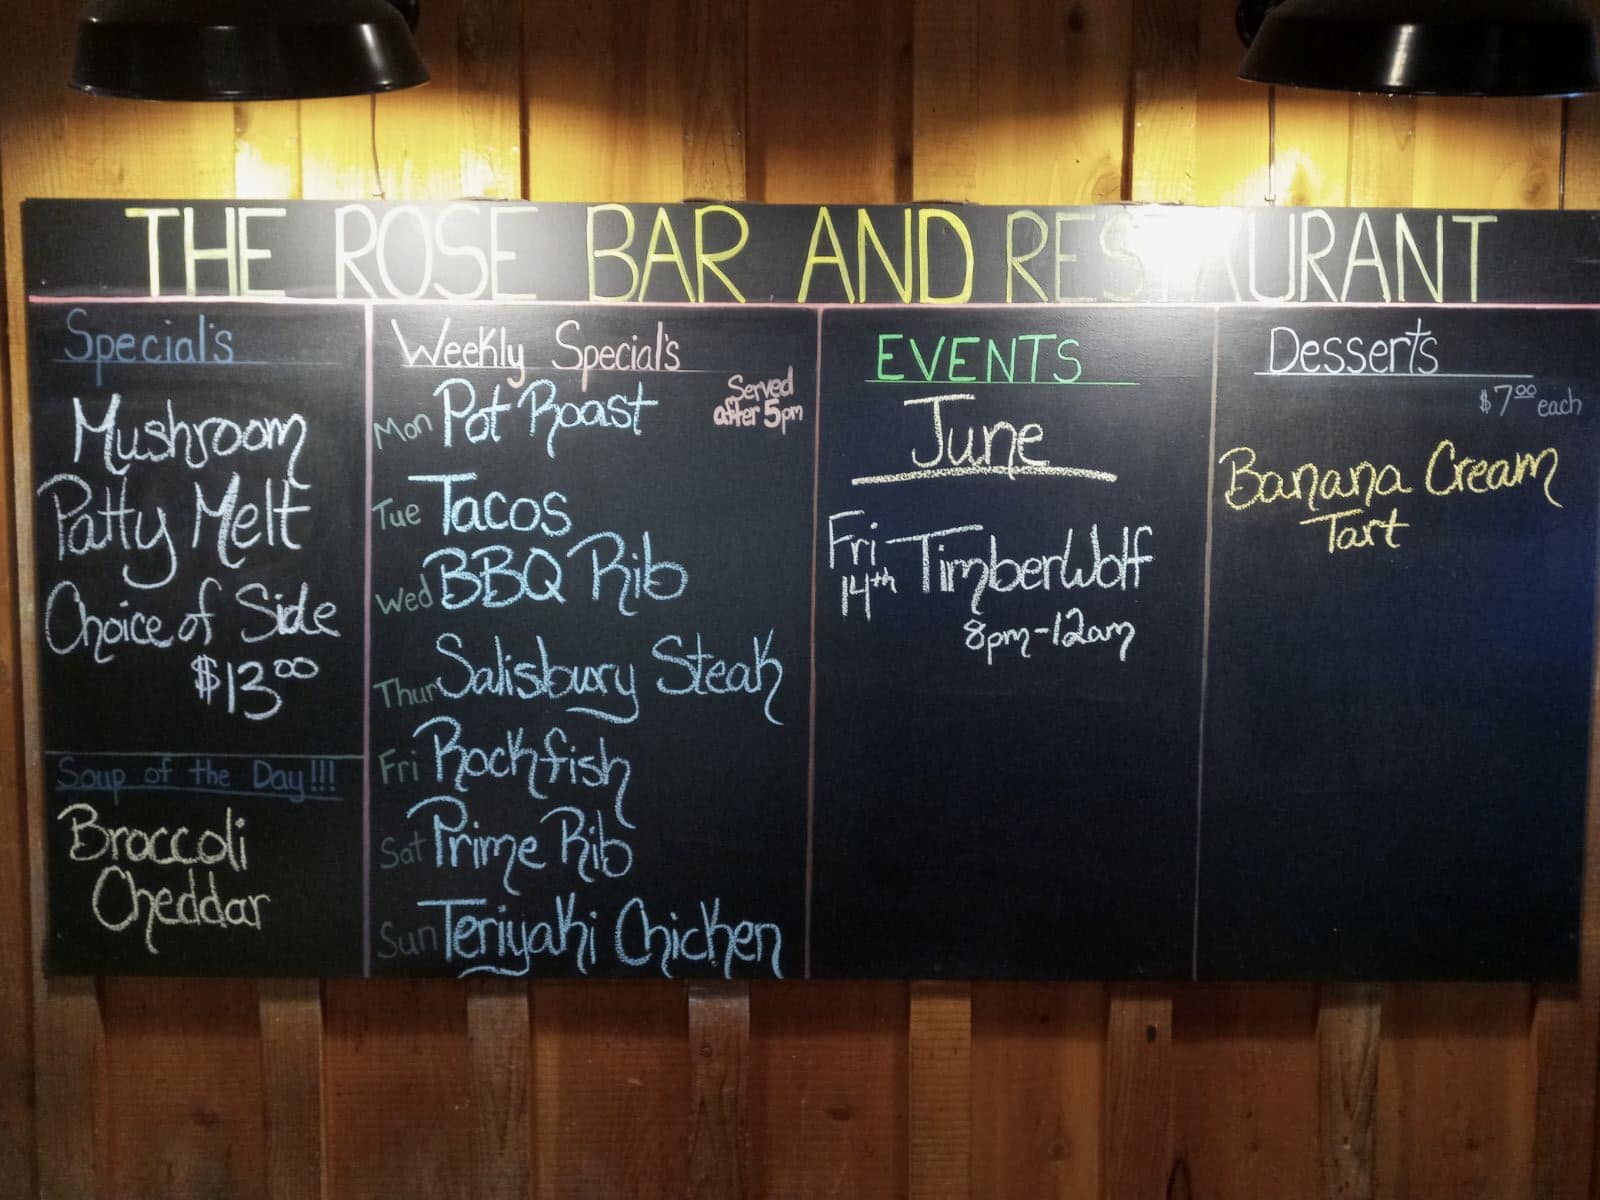 THE ROSE BAR AND RESTAURANT
Special's
Mushroom
Patty Melt
Choice of Side
$13.00
Soup of the Day!!!
Broccoli
Cheddar
Weekly Special's
Served
after 5pm
Mon Pot Roast
Tue Tacos
Wed BBQ Rib
Thur Salisbury Steak
Fri Rockfish
Sat Prime Rib
Sun Teriyaki Chicken
EVENTS
June
Fri TimberWolf
14th
8pm-12am
Desserts
$7.00 each
Banana Cream
Tart